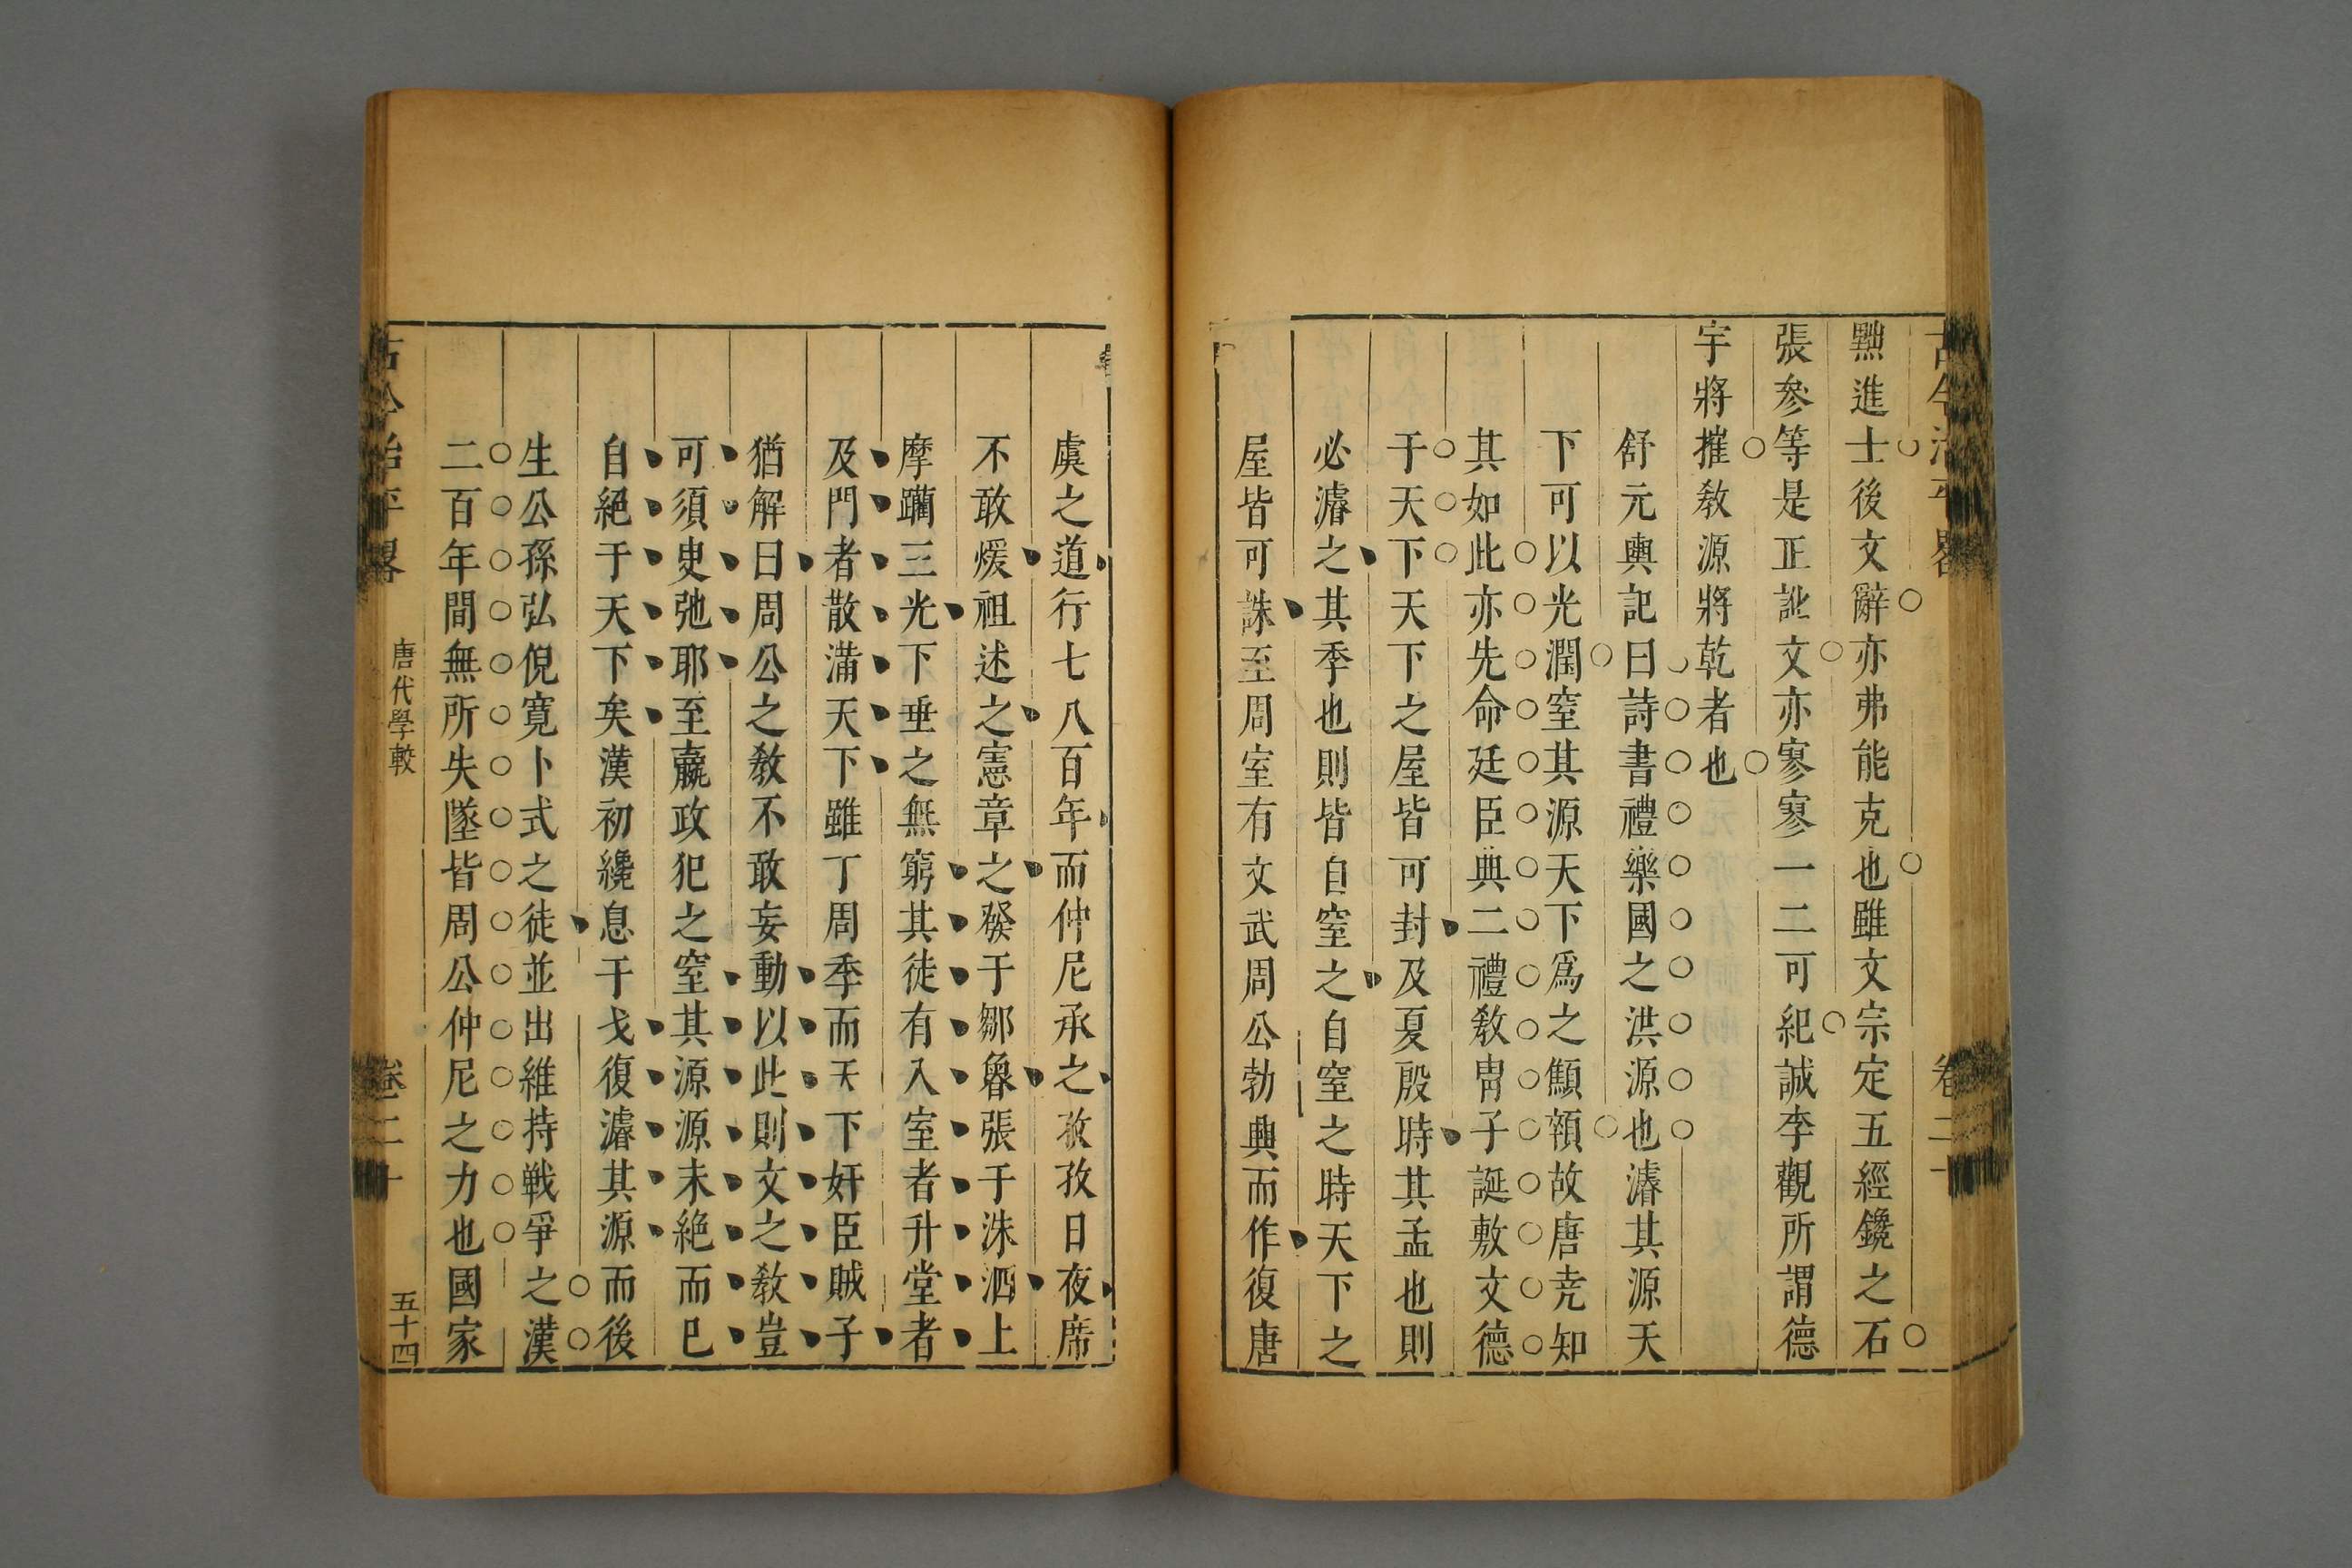 古今治平畧
卷二十
黜進士後文辭亦弗能克也雖文宗定五經鑱之石
張參等是正訛文亦寥寥一二可紀誠李觀所謂德
宇將摧教源將乾者也
舒元輿記曰詩書禮樂國之洪源也濬其源天
下可以光潤窒其源天下爲之顦顇故唐尭知
其如此亦先命廷臣典二禮敎胄子誕敷文德
于天下天下之屋皆可封及夏殷時其孟也則
必濬之其季也則皆自窒之自窒之時天下之
屋皆可誅至周室有文武周公勃興而作復唐
虞之道行七八百年而仲尼承之孜孜日夜席
不敢煖祖述之憲章之發于鄒魯張于洙泗上
摩躪三光下垂之無窮其徒有入室者升堂者
及門者散滿天下雖丁周季而天下奸臣賊子
猶解曰周公之敎不敢妄動以此則文之敎豈
可須臾弛耶至嬴政犯之窒其源源未絶而已
自絕于天下矣漢初纔息干戈復濬其源而後
生公孫弘倪寬卜式之徒並出維持戰爭之漢
二百年間無所失墜皆周公仲尼之力也國家
古今治平畧
唐代學較
卷二十
五十四